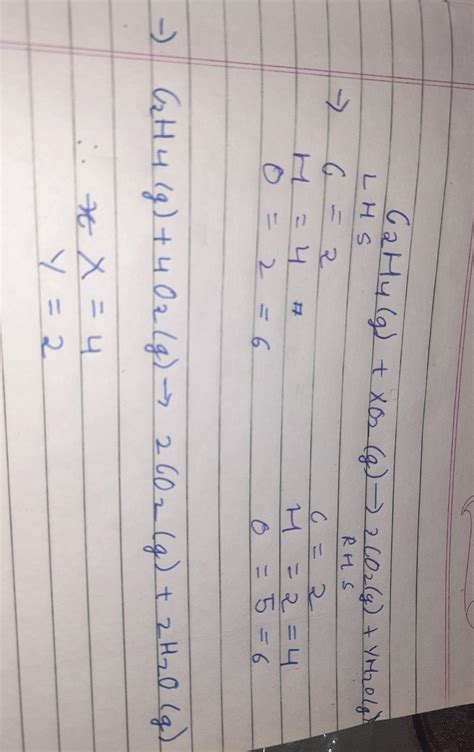 C2H4(g) + XO2(g) → 2CO2(g) + YH2O(g)
LHS RHS
→ C = 2 C = 2
H = 4 H = 2 = 4
O = 2 = 6 O = 5 = 6
→) C2H4(g) + 4O2(g) → 2CO2(g) + 2H2O(g)
∴ X = 4
Y = 2